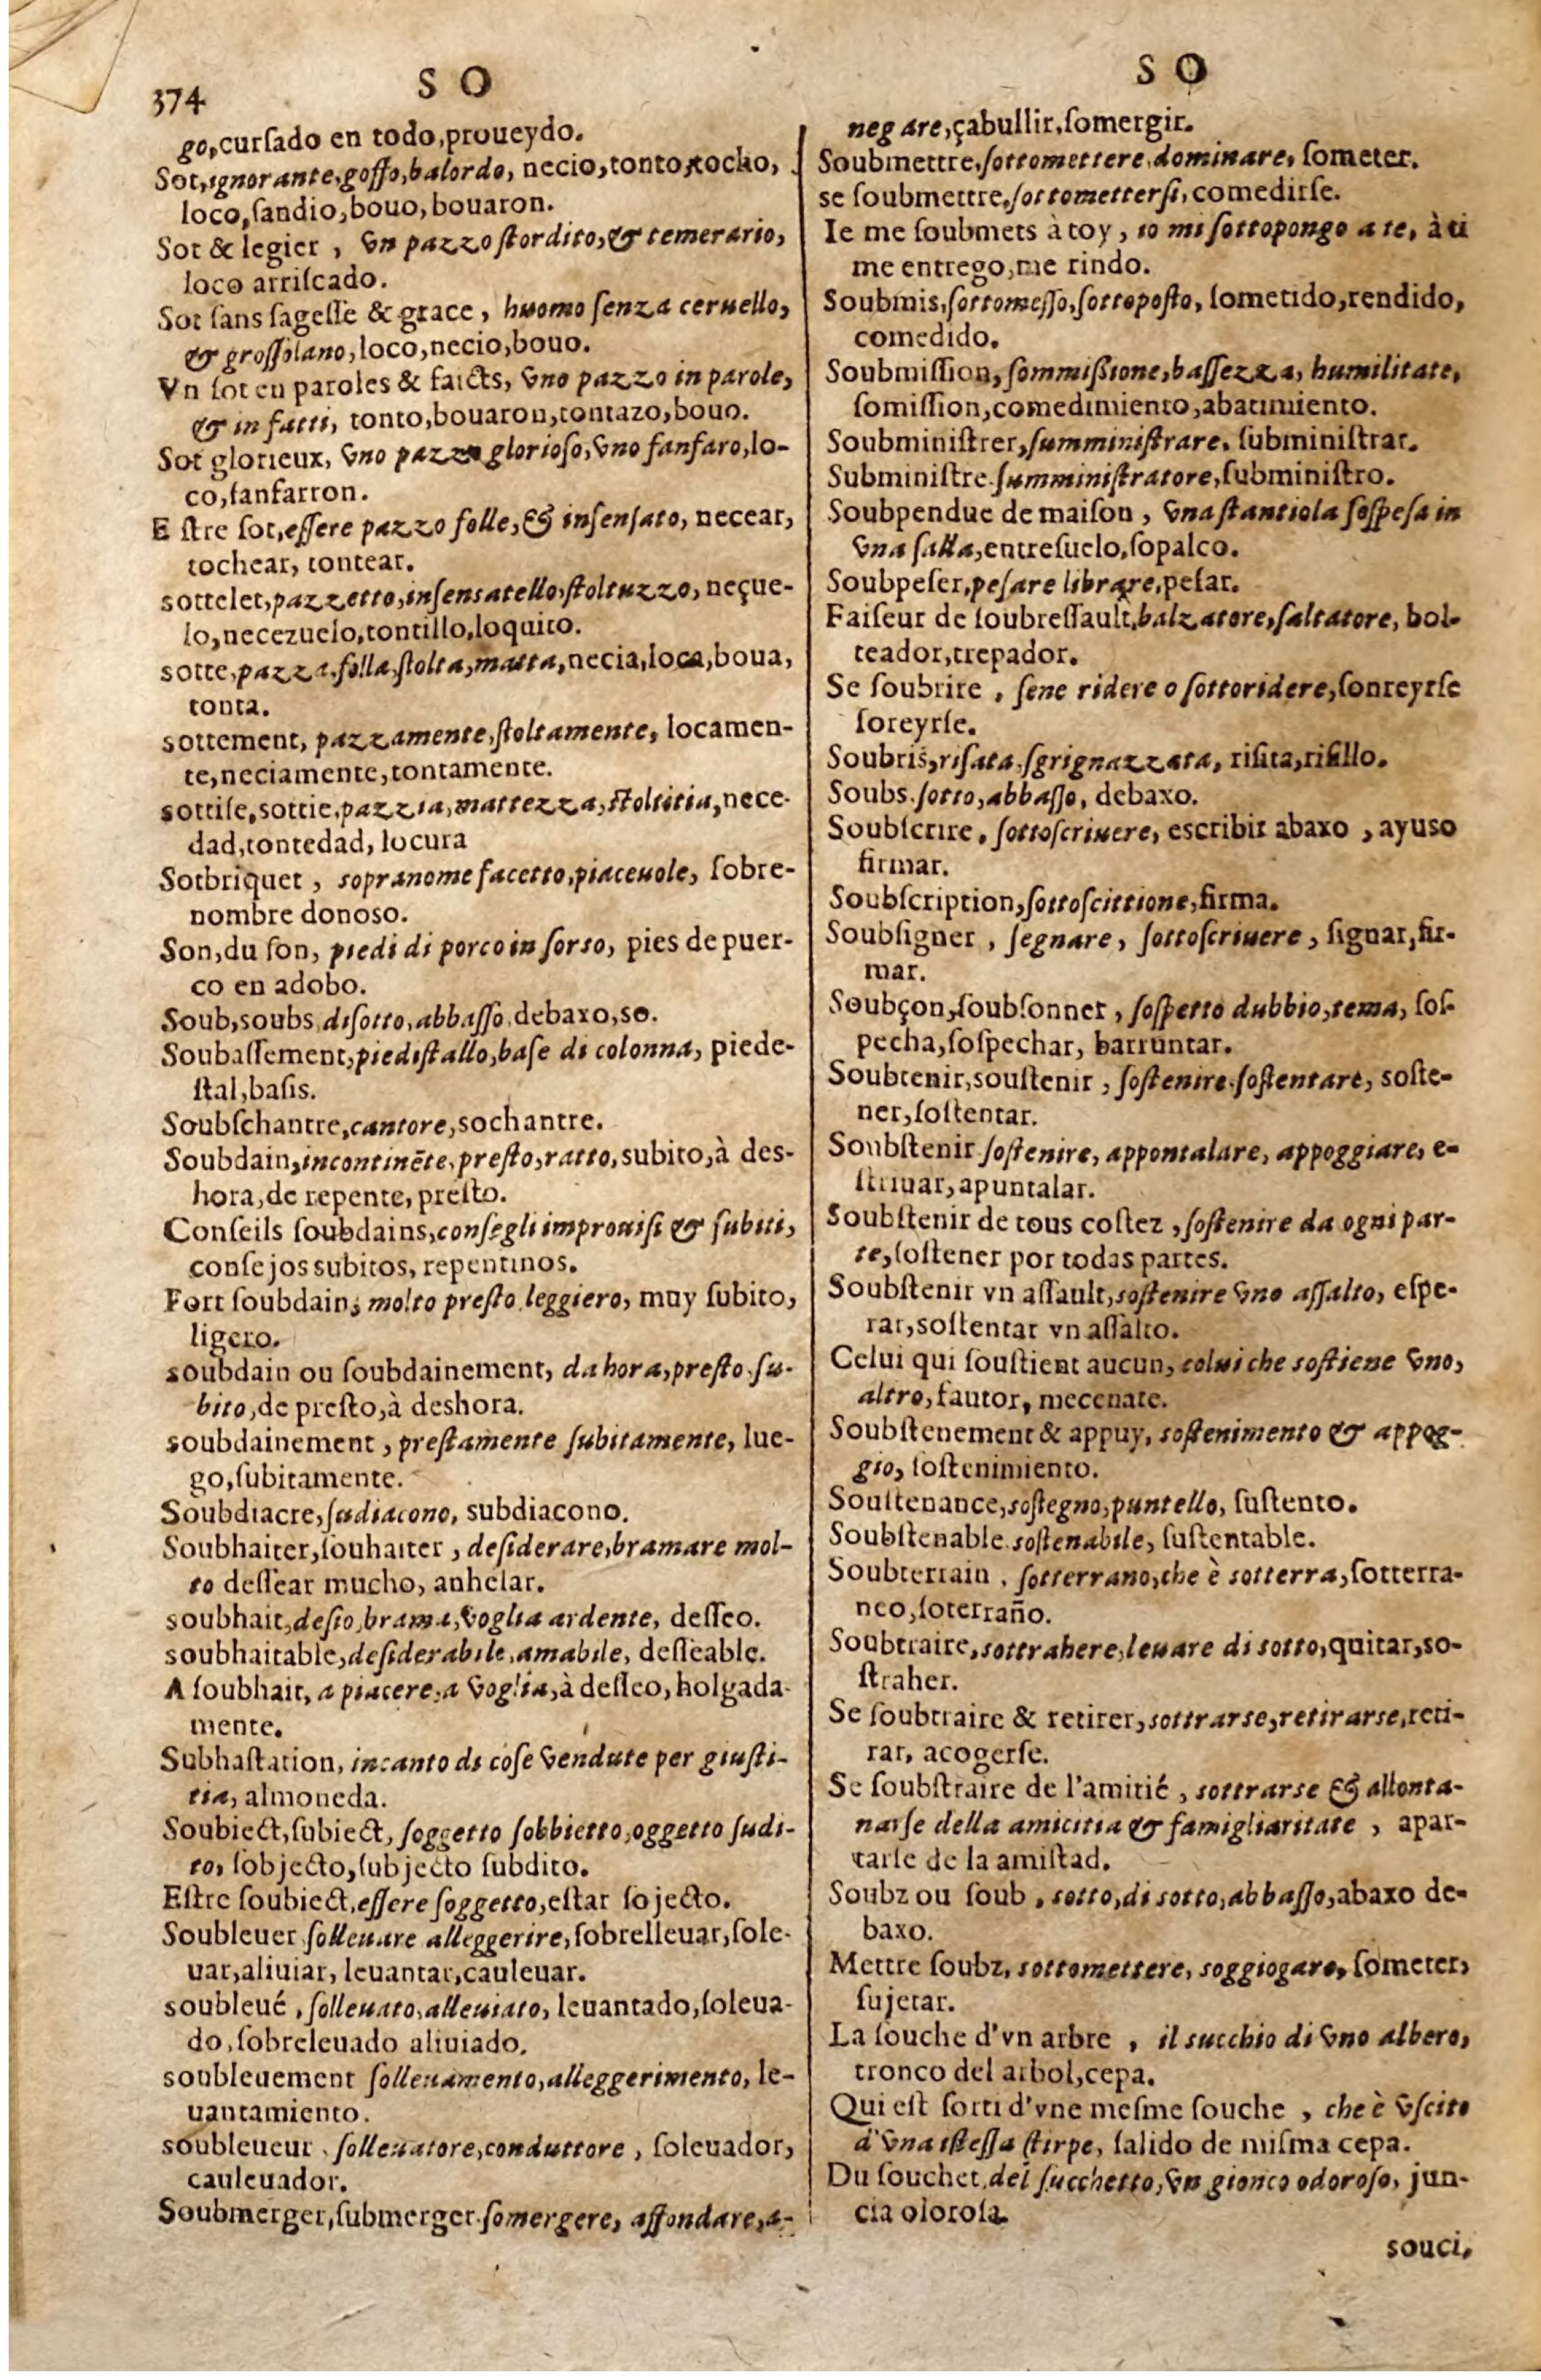 374
S O
go,curſado en todo,proueydo.
Sot,ignorante,goffo,balordo, necio,tonto,tocho,
loco,ſandio,bouo,bouaron.
Sot & legier , vn pazzo ſtordito,& temerario,
loco arriſcado.
Sot ſans ſageſſe & grace , huomo ſenza ceruello,
& groſſolano,loco,necio,bouo.
Vn ſot en paroles & faicts, vno pazzo in parole,
& in fatti, tonto,bouaron,tontazo,bouo.
Sot glorieux, vno pazzo glorioſo,vno fanfaro,lo-
co,fanfarron.
E ſtre ſot,eſſere pazzo folle,& inſenſato, necear,
tochear, tontear.
sottelet,pazzetto,inſensatello,ſtoltuzzo, neçue-
lo,necezuelo,tontillo,loquito.
sotte,pazza,folla,ſtolta,matta,necia,loca,boua,
tonta.
sottement, pazzamente,ſtoltamente, locamen-
te,neciamente,tontamente.
sottiſe,sottie,pazzia,mattezza,ſtoltitia,nece-
dad,tontedad, locura
Sotbriquet , sopranome facetto,piaceuole, ſobre-
nombre donoso.
Son,du ſon, piedi di porco in ſorso, pies de puer-
co en adobo.
Soub,soubs,diſotto,abbaſſo,debaxo,so.
Soubaſſement,piediſtallo,baſe di colonna, piede-
ſtal,baſis.
Soubſchantre,cantore,sochantre.
Soubdain,incontinēte,preſto,ratto,subito,à des-
hora,de repente, preſto.
Conſeils ſoubdains,conſegli improuiſi & ſubiti,
conſejos subitos, repentinos.
Fort ſoubdain, molto preſto leggiero, muy ſubito,
ligero.
soubdain ou ſoubdainement, da hora,preſto ſu-
bito,de preſto,à deshora.
soubdainement , preſtamente ſubitamente, lue-
go,ſubitamente.
Soubdiacre,ſudiacono, subdiacono.
Soubhaiter,ſouhaiter , deſiderare,bramare mol-
to deſſear mucho, anhelar.
soubhait,deſio,brama,voglia ardente, deſſeo.
soubhaitable,deſiderabile,amabile, deſſeable.
A ſoubhait, a piacere,a voglia,à deſſeo,holgada-
mente.
Subhaſtation, incanto di coſe vendute per giuſti-
tia, almoneda.
Soubiect,ſubiect, ſoggetto ſobbietto,oggetto ſudi-
to, ſobjecto,ſubjecto ſubdito.
Eſtre ſoubiect,eſſere ſoggetto,eſtar ſojecto.
Soubleuer ſolleuare alleggerire,ſobrelleuar,ſole-
uar,aliuiar, leuantar,cauleuar.
soubleué , ſolleuato,alleuiato, leuantado,ſoleua-
do,ſobreleuado aliuiado.
soubleuement ſolleuamento,alleggerimento, le-
uantamiento.
soubleueur , ſolleuatore,conduttore , ſoleuador,
cauleuador.
Soubmerger,ſubmerger ſomergere, affondare,a-
S O
negare,çabullir,ſomergir.
Soubmettre,ſottomettere,dominare, ſometer.
se ſoubmettre,ſottometterſi,comedirſe.
Ie me ſoubmets à toy , io mi ſottopongo a te, à ti
me entrego,me rindo.
Soubmis,ſottomeſſo,ſottopoſto, ſometido,rendido,
comedido.
Soubmiſſion,ſommiſsione,baſſezza, humilitate,
ſomiſſion,comedimiento,abatimiento.
Soubminiſtrer,ſumminiſtrare, ſubminiſtrar.
Subminiſtre ſumminiſtratore,ſubminiſtro.
Soubpendue de maiſon , vna ſtantiola ſoſpeſa in
vna ſalla,entreſuelo,ſopalco.
Soubpeſer,peſare librare,peſar.
Faiſeur de ſoubreſſault,balzatore,ſaltatore, bol-
teador,trepador.
Se ſoubrire , ſene ridere o ſottoridere,ſonreyrſe
ſoreyrſe.
Soubris,riſata,ſgrignazzata, riſita,riſillo.
Soubs ſotto,abbaſſo, debaxo.
Soubſcrire, ſottoſcriuere, escribir abaxo , ayuso
firmar.
Soubſcription,ſottoſcittione,firma.
Soubſigner , ſegnare, ſottoſcriuere , ſignar,fir-
mar.
Soubçon,ſoubſonner , ſoſpetto dubbio,tema, ſoſ-
pecha,ſoſpechar, barruntar.
Soubtenir,souſtenir , ſoſtenire ſoſtentare, soſte-
ner,ſoſtentar.
Soubſtenir ſoſtenire, appontalare, appoggiare, e-
ſtriuar,apuntalar.
Soubſtenir de tous coſtez ,ſoſtenire da ogni par-
te,ſoſtener por todas partes.
Soubſtenir vn aſſault,soſtenire vno aſſalto, eſpe-
rar,soſtentar vn aſſalto.
Celui qui ſouſtient aucun, colui che soſtiene vno,
altro,fautor, mecenate.
Soubſtenement & appuy, soſtenimento & appog-
gio, ſoſtenimiento.
Souſtenance,soſtegno,puntello, ſuſtento.
Soubſtenable soſtenabile, ſuſtentable.
Soubterrain , ſotterrano,che è sotterra,ſotterra-
neo,ſoterraño.
Soubtraire,sottrahere,leuare di sotto,quitar,so-
ſtraher.
Se ſoubtraire & retirer,sottrarse,retirarse,reti-
rar, acogerſe.
Se ſoubſtraire de l'amitié , sottrarse & allonta-
narſe della amicitia & famigliaritate , apar-
tarſe de la amiſtad.
Soubz ou ſoub , sotto,di sotto,abbaſſo,abaxo de-
baxo.
Mettre ſoubz, sottomettere, soggiogare, ſometer,
ſujetar.
La ſouche d'vn arbre , il succhio di vno albero,
tronco del arbol,cepa.
Qui eſt ſorti d'vne meſme ſouche , che è vſcito
d'vna iſteſſa ſtirpe, ſalido de miſma cepa.
Du ſouchet,del ſucchetto,vn gionco odoroſo, jun-
cia oloroſa.
souci,